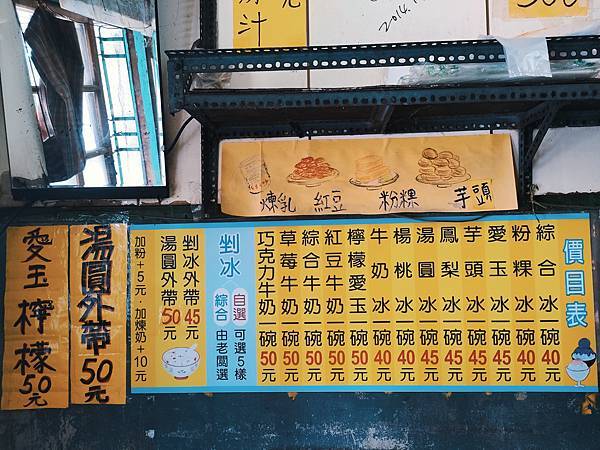 汁
元
2014.
煉乳 紅豆 粉粿 芋頭
價目表
綜合冰一碗40元
粉粿冰一碗40元
愛玉冰一碗40元
芋頭冰一碗45元
鳳梨冰一碗45元
湯圓冰一碗45元
楊桃冰一碗40元
牛奶冰一碗40元
檸檬愛玉一碗50元
紅豆牛奶一碗50元
綜合牛奶一碗50元
草莓牛奶一碗50元
巧克力牛奶一碗50元
剉冰
自選 可選5樣
綜合 由老闆選
剉冰外帶45元
湯圓外帶50元
加粉+5元．加煉奶+10元
湯圓外帶50元
愛玉檸檬50元